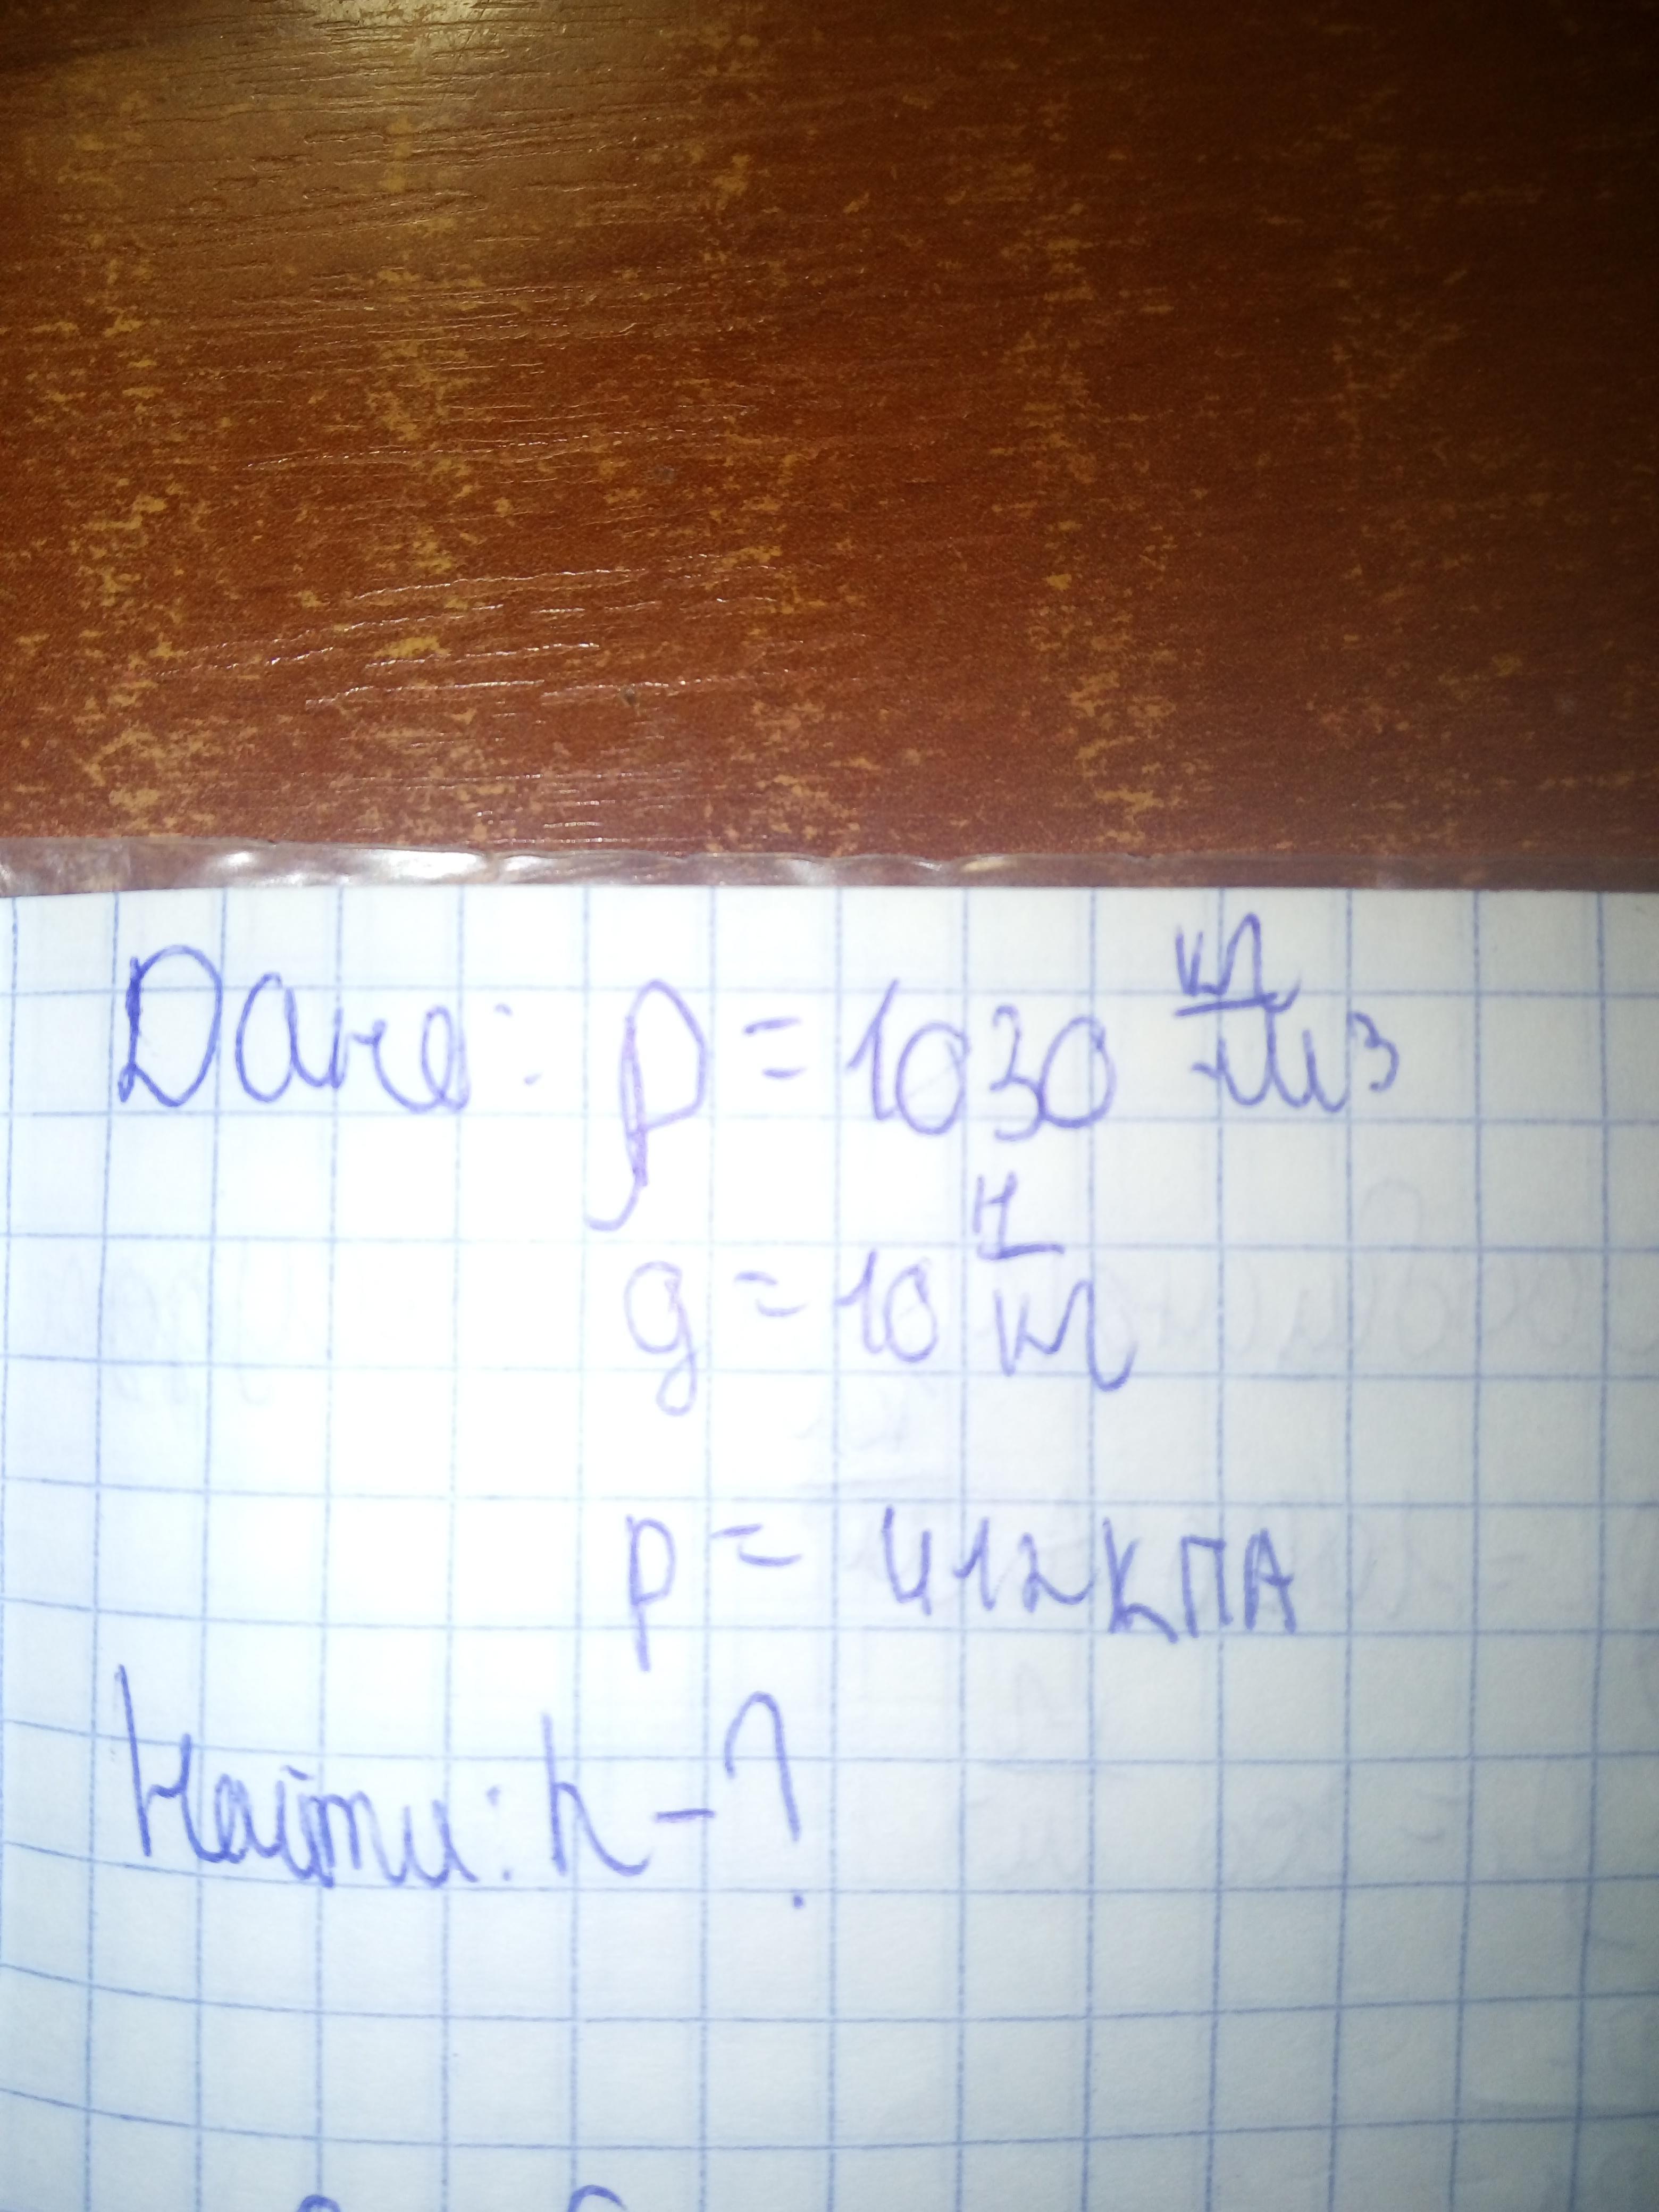 Дано: ρ = 1030 кг/м3
g = 10 Н/кг
p = 412 кПА
Найти: h - ?